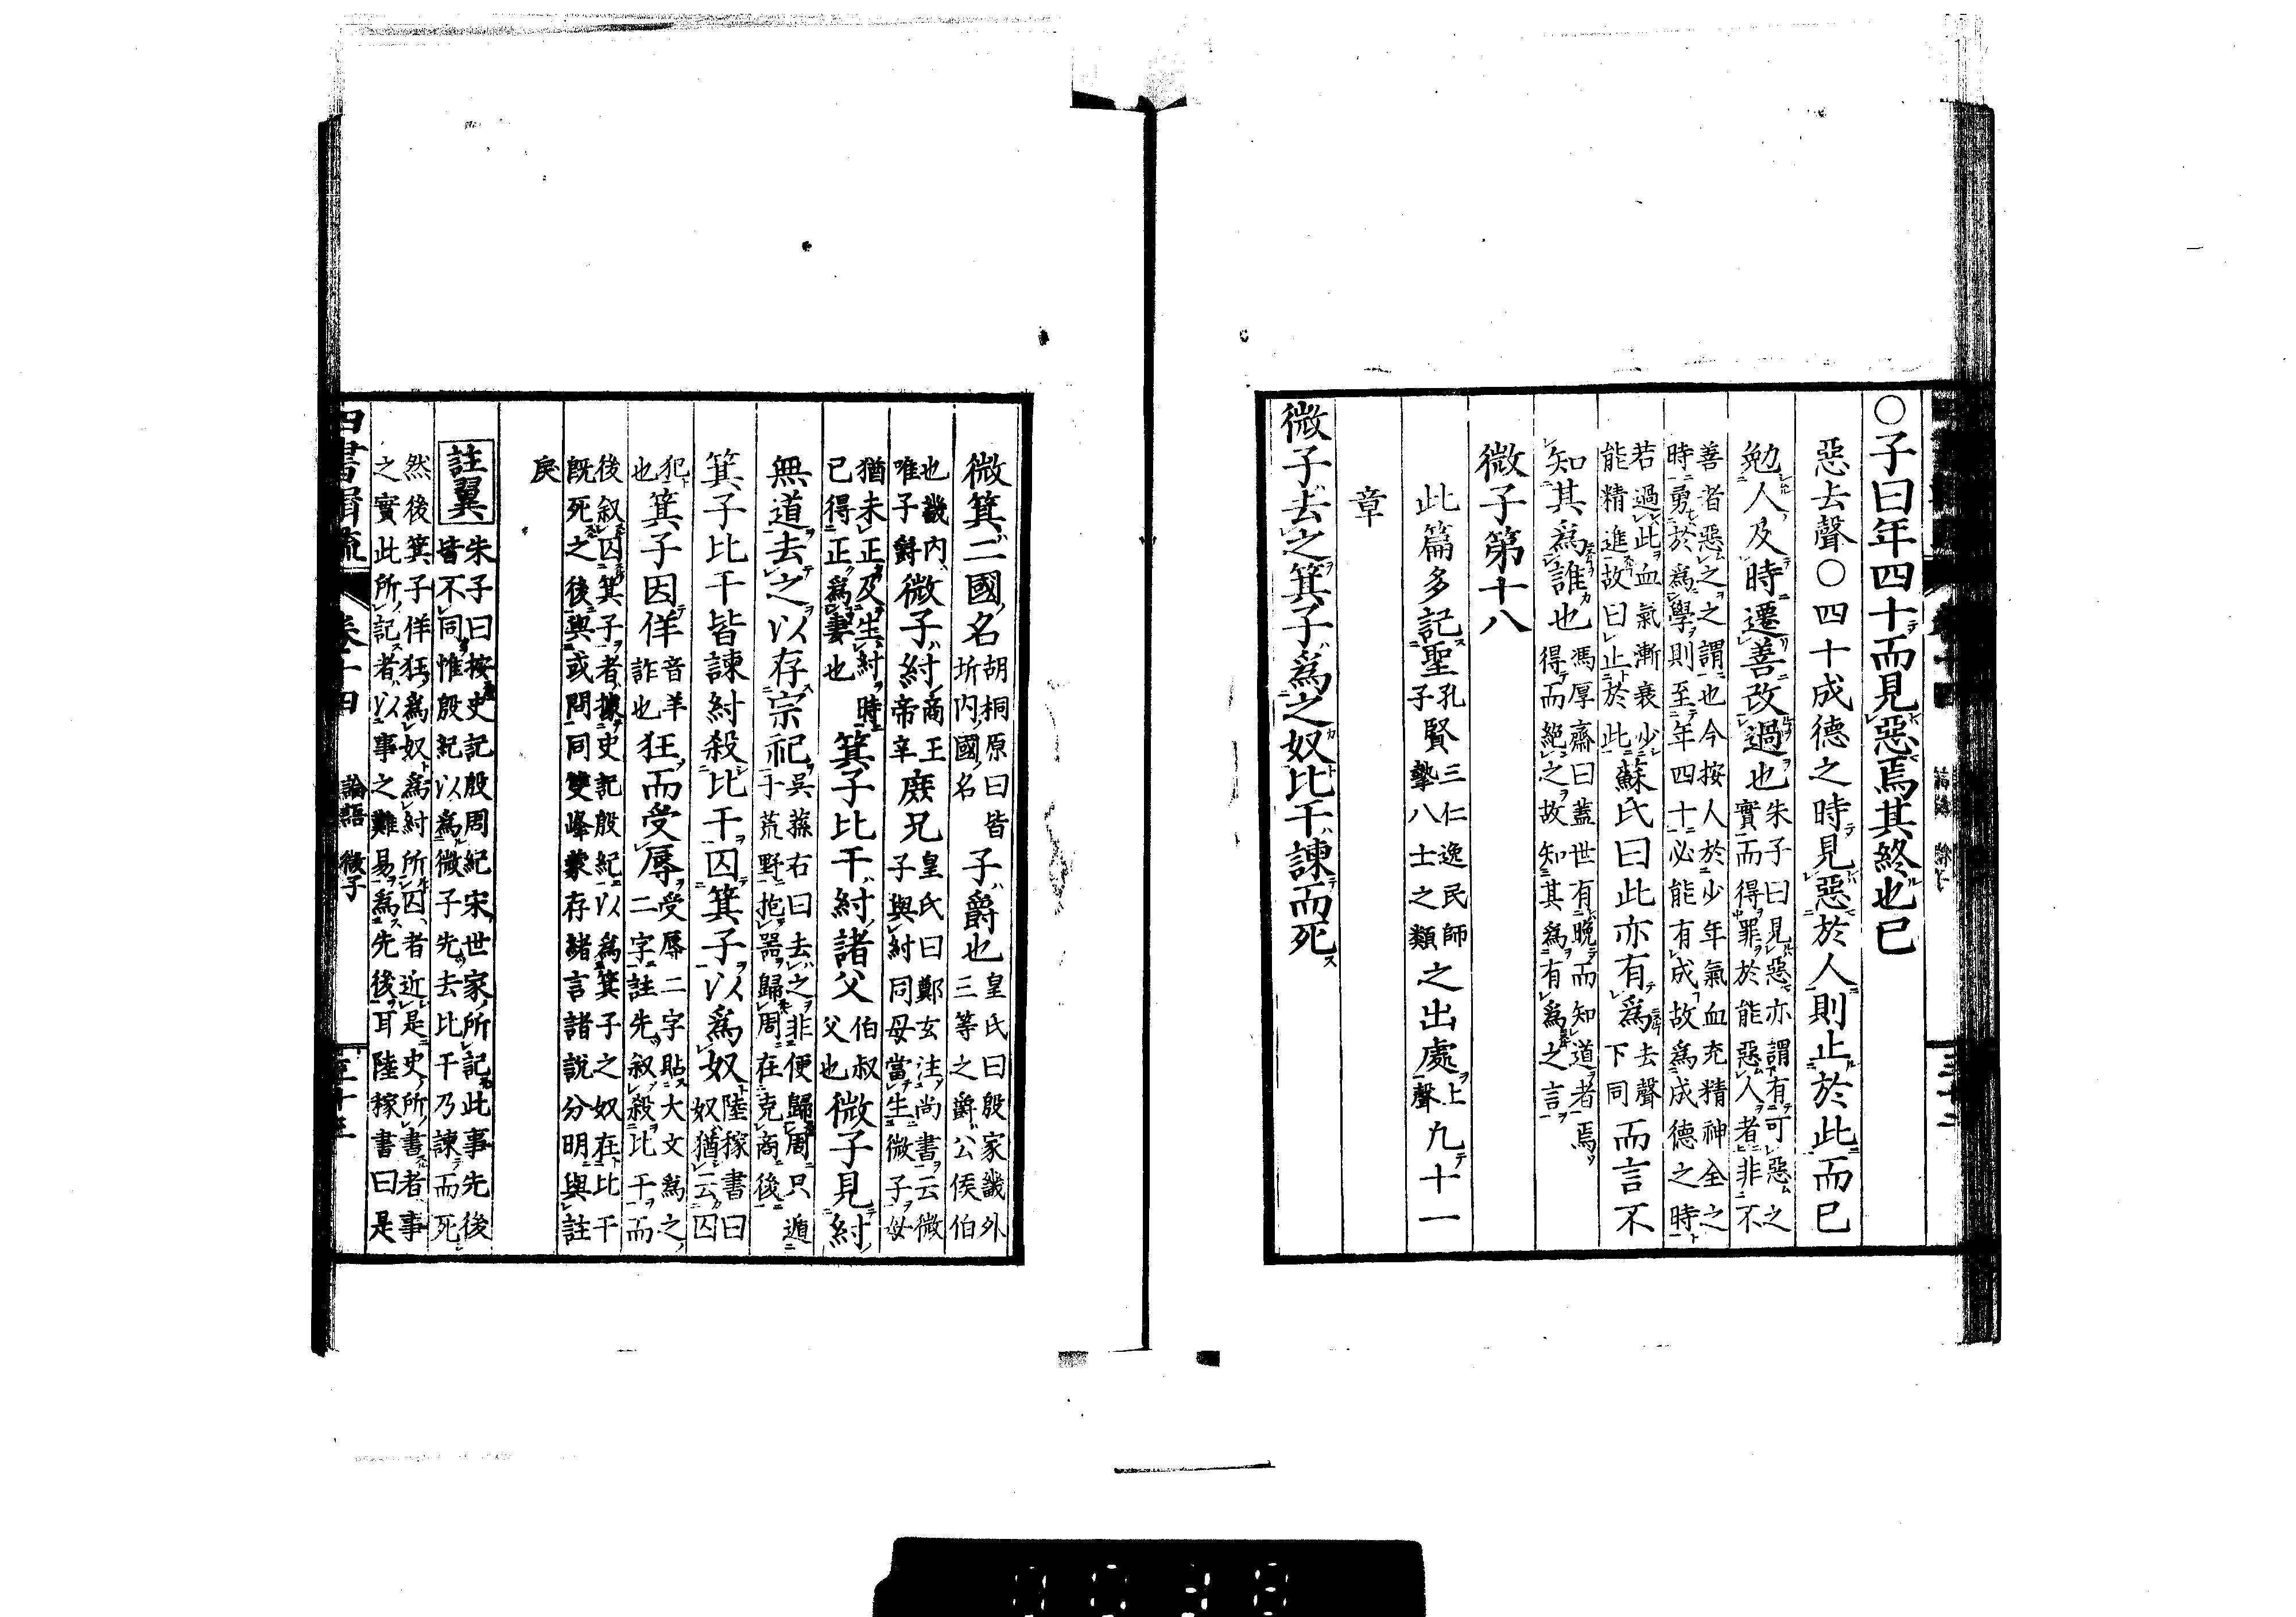 ○子曰年四十而見惡焉其終也已
惡去聲○四十成德之時見惡於人則止於此而已
勉人及時遷善改過也朱子曰見惡亦謂有可惡之實而得罪於能惡人者非不
善者惡之之謂也今按人於少年氣血充精神全之時勇於為學則至年四十必能有成故為成德之時
若過此血氣漸衰少能精進故曰止於此蘇氏曰此亦有爲去聲下同而言不
知其爲誰也馮厚齋曰蓋世有晩而知道者焉得而絶之故知其爲有爲之言
微子第十八
此篇多記聖孔子賢三仁逸民師摯八士之類之出處上聲九十一
章
微子去之箕子爲之奴比干諫而死
微箕二國名胡桐原曰皆圻内國名子爵也皇氏曰殷家畿外三等之爵公侯伯
也畿内唯子爵微子紂商王帝辛庶兄皇氏曰鄭玄注尚書云微子與紂同母當生微子母
猶未正及生紂時已得正爲妻也箕子比干紂諸父伯叔父也微子見紂
無道去之以存宗祀吳蓀右曰去之非便歸周只遁于荒野抱器歸周在克商後
箕子比干皆諫紂殺比干囚箕子以爲奴陸稼書曰奴猶云囚
犯也箕子因佯音羊詐也狂而受辱受辱二字貼大文爲之二字註先叙殺比干而
後叙囚箕子者據史記殷紀以爲箕子之奴在比干既死之後與或問同雙峰蒙存諸言諸說分明與註
戾
註翼朱子曰按史記殷周紀宋世家所記此事先後皆不同惟殷紀以爲微子先去比干乃諫而死
然後箕子佯狂爲奴爲紂所囚者近是史所書者事之實此所記者以事之難易爲先後耳陸稼書曰是
論語 微子